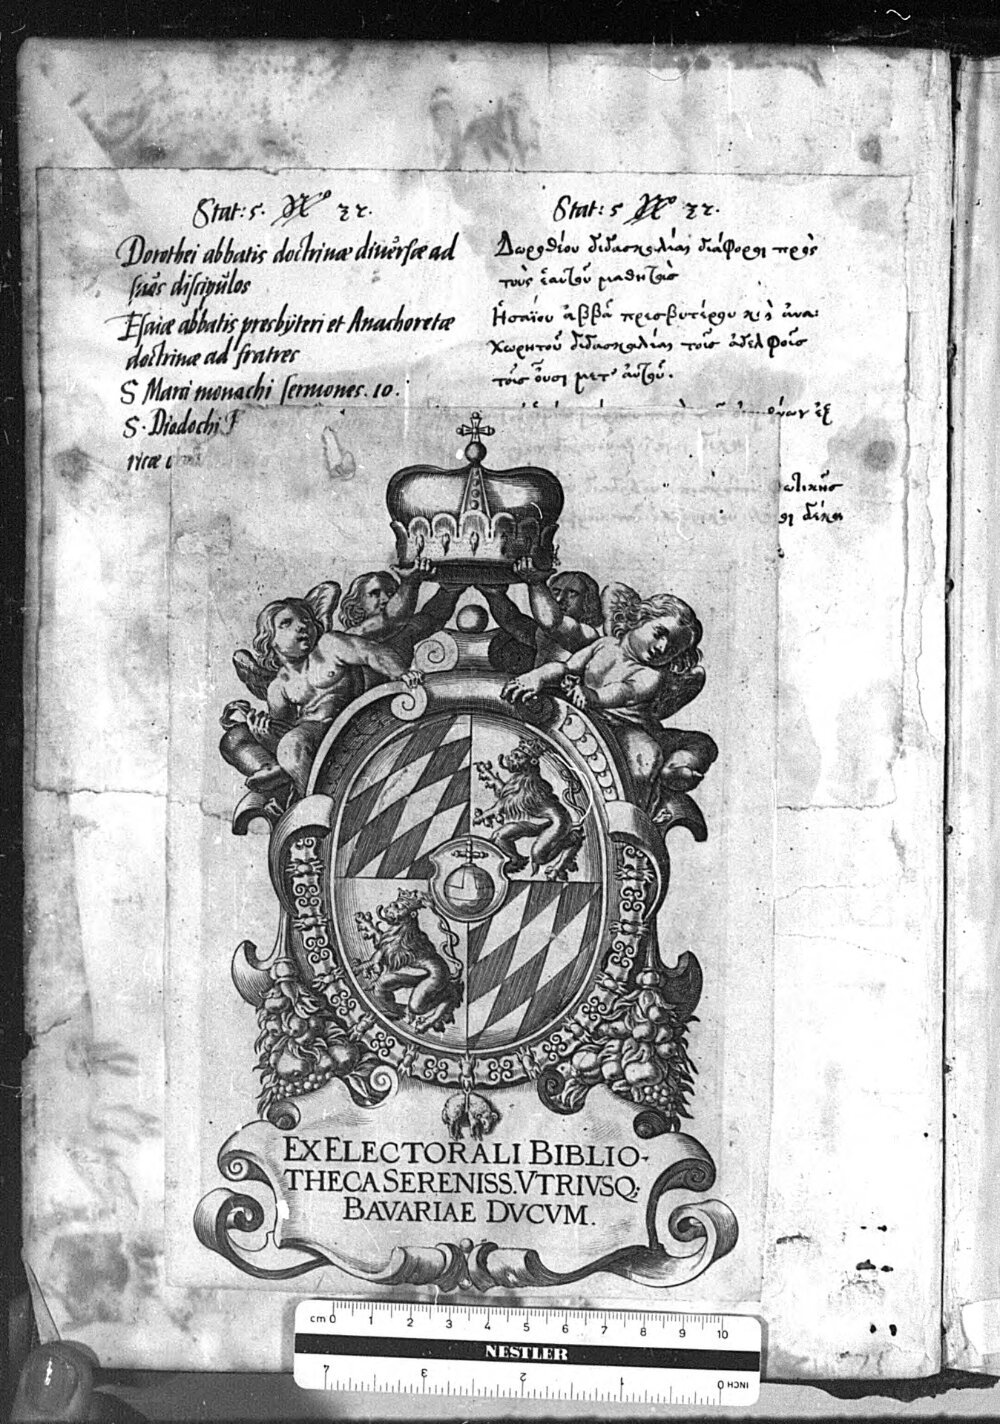 Stat: 5. No 32.
Dorothei abbatis doctrinæ diuersæ ad
suos discipulos
Esaiæ abbatis presbÿteri et Anachoretæ
doctrinæ ad fratres
S Marci monachi sermones. 10.
S. Diadochi
Stat: 5 No 32.
Δωροθέου διδασκαλίαι διάφοροι πρὸς
τοὺς ἑαυτοῦ μαθητὰς
Ἠσαΐου ἀββᾶ πρεσβυτέρου καὶ ἀνα:
χωρητοῦ διδασκαλίαι τοῖς ἀδελφοῖς
τοῖς οὖσι μετ' αὐτοῦ.
EX ELECTORALI BIBLIO-
THECA SERENISS. VTRIVSQ;
BAVARIAE DVCVM.
cm 0 1 2 3 4 5 6 7 8 9 10
NESTLER
0 INCH 1 2 3 4